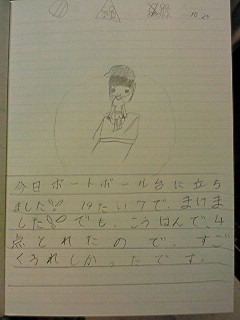 10.24
今日ポートボール台に立ち
ました!! 19たい7で、まけま
した!! でも、こうはんで、4
点とれたので、すご
くうれしかったです。